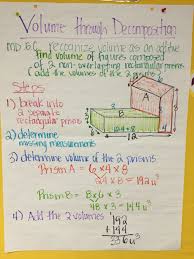 Volume through Decomposition
MD.5C recognize volume as an additive
find volume of figures composed
of 2 non-overlapping rectangular prisms
(add the volumes of the 2
Steps
1) break into
2 separate
rectangular prisms
A
B
2) determine
missing measurements
3) determine volume of the 2 prisms
Prism A = 6 x 4 x 8
24 x 8 = 192u³
Prism B = 8 x 6 x 3
48 x 3 = 144u³
4) Add the 2 volumes
192
+144
336u³